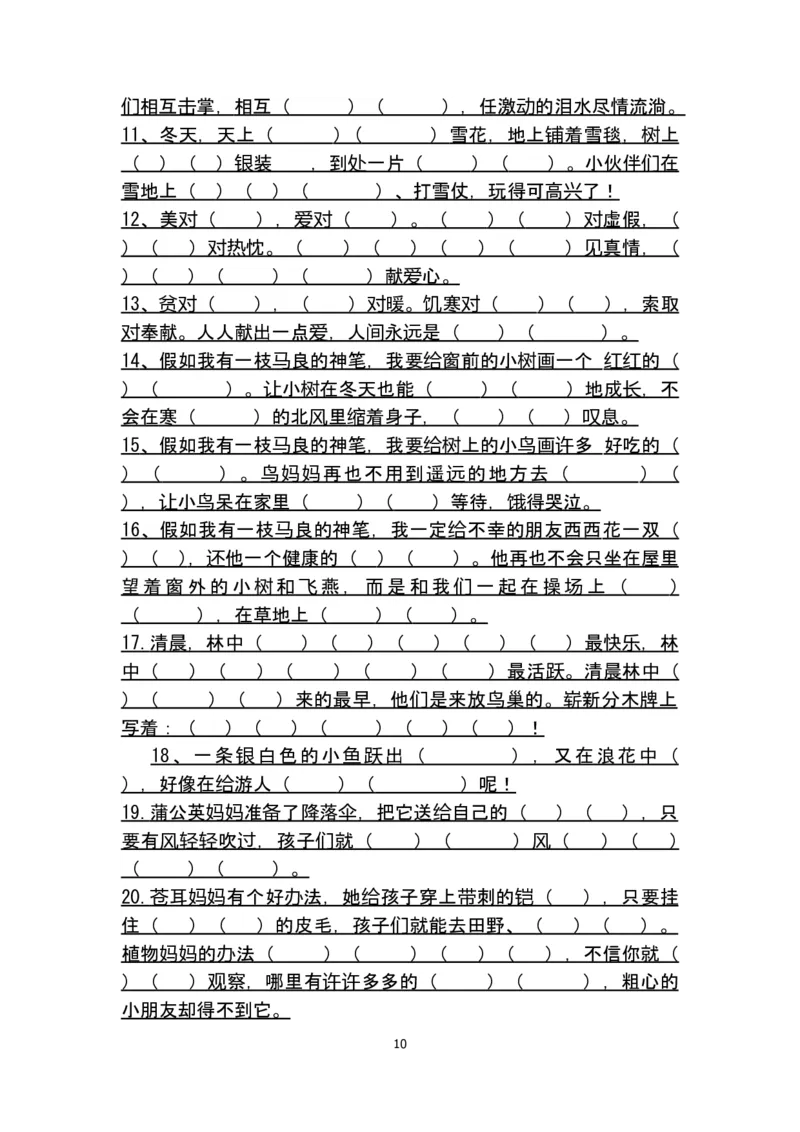 们相互击掌，相互（　　）（　　），任激动的泪水尽情流淌。
11、冬天，天上（　　）（　　）雪花，地上铺着雪毯，树上
（　）（　）银装　　，到处一片（　　）（　　）。小伙伴们在
雪地上（　）（　）（　　）、打雪仗，玩得可高兴了！
12、美对（　　），爱对（　　）。（　　）（　　）对虚假，（
）（　）对热忱。（　　）（　）（　）（　　）见真情，（
）（　）（　　）（　　）献爱心。
13、贫对（　　），（　　）对暖。饥寒对（　　）（　），索取
对奉献。人人献出一点爱，人间永远是（　　）（　　）。
14、假如我有一枝马良的神笔，我要给窗前的小树画一个 红红的（
）（　　）。让小树在冬天也能（　　）（　　）地成长，不
会在寒（　　）的北风里缩着身子，（　　）（　）叹息。
15、假如我有一枝马良的神笔，我要给树上的小鸟画许多 好吃的（
）（　　）。鸟妈妈再也不用到遥远的地方去（　　）（
），让小鸟呆在家里（　　）（　　）等待，饿得哭泣。
16、假如我有一枝马良的神笔，我一定给不幸的朋友西西花一双（
）（　），还他一个健康的（　）（　　）。他再也不会只坐在屋里
望着窗外的小树和飞燕，而是和我们一起在操场上（　　）
（　　），在草地上（　　）（　　）。
17.清晨，林中（　　）（　）（　）（　）（　）最快乐，林
中（　）（　）（　　）（　　）（　　）最活跃。清晨林中（
）（　　）（　）来的最早，他们是来放鸟巢的。崭新分木牌上
写着：（　）（　）（　　）（　）（　）！
18、一条银白色的小鱼跃出（　　），又在浪花中（
），好像在给游人（　　）（　　）呢！
19.蒲公英妈妈准备了降落伞，把它送给自己的（　）（　），只
要有风轻轻吹过，孩子们就（　　）（　　）风（　）（　）
（　　）（　　）。
20.苍耳妈妈有个好办法，她给孩子穿上带刺的铠（　），只要挂
住（　）（　）的皮毛，孩子们就能去田野、（　）（　）。
植物妈妈的办法（　　）（　　）（　）（　），不信你就（
）（　）观察，哪里有许许多多的（　　）（　　），粗心的
小朋友却得不到它。
10